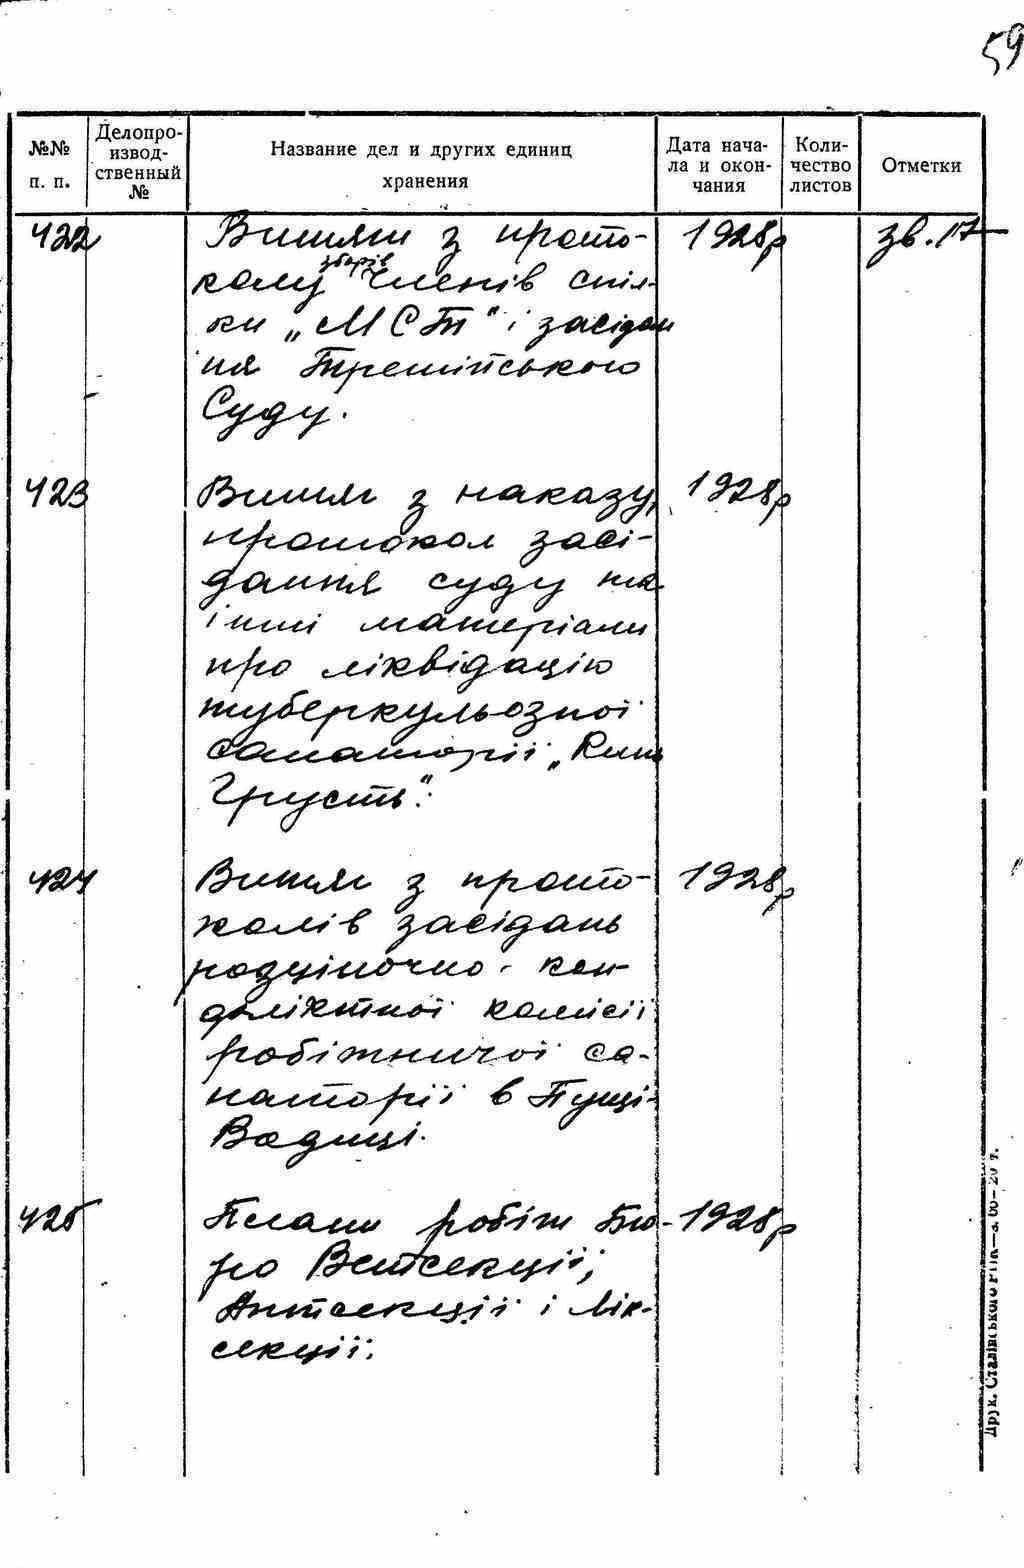 59
№№ п. п.
Делопро-
извод-
ственный
№
Название дел и других единиц
хранения
Дата нача-
ла и окон-
чания
Коли-
чество
листов
Отметки
422 Витяги з прото- 1928р зв.
колу зборів членів спіл-
ки „МСТ" і засідан
ня Третійського
Суду.
423 Витяг з наказу, 1928р
протокол засі-
дання суду та
інші матеріали
про ліквідацію
туберкульозної
санаторії „Кинь
Грусть".
424 Витяг з прото- 1928р
колів засідань
розціночно-кон-
фліктної комісії
робітничої са-
наторії в Пущі-
Водиці.
425 Плани робіт Бю- 1928р
ро Ветсекції,
Антсекції і Лік-
секції.
Друк. Сталінського